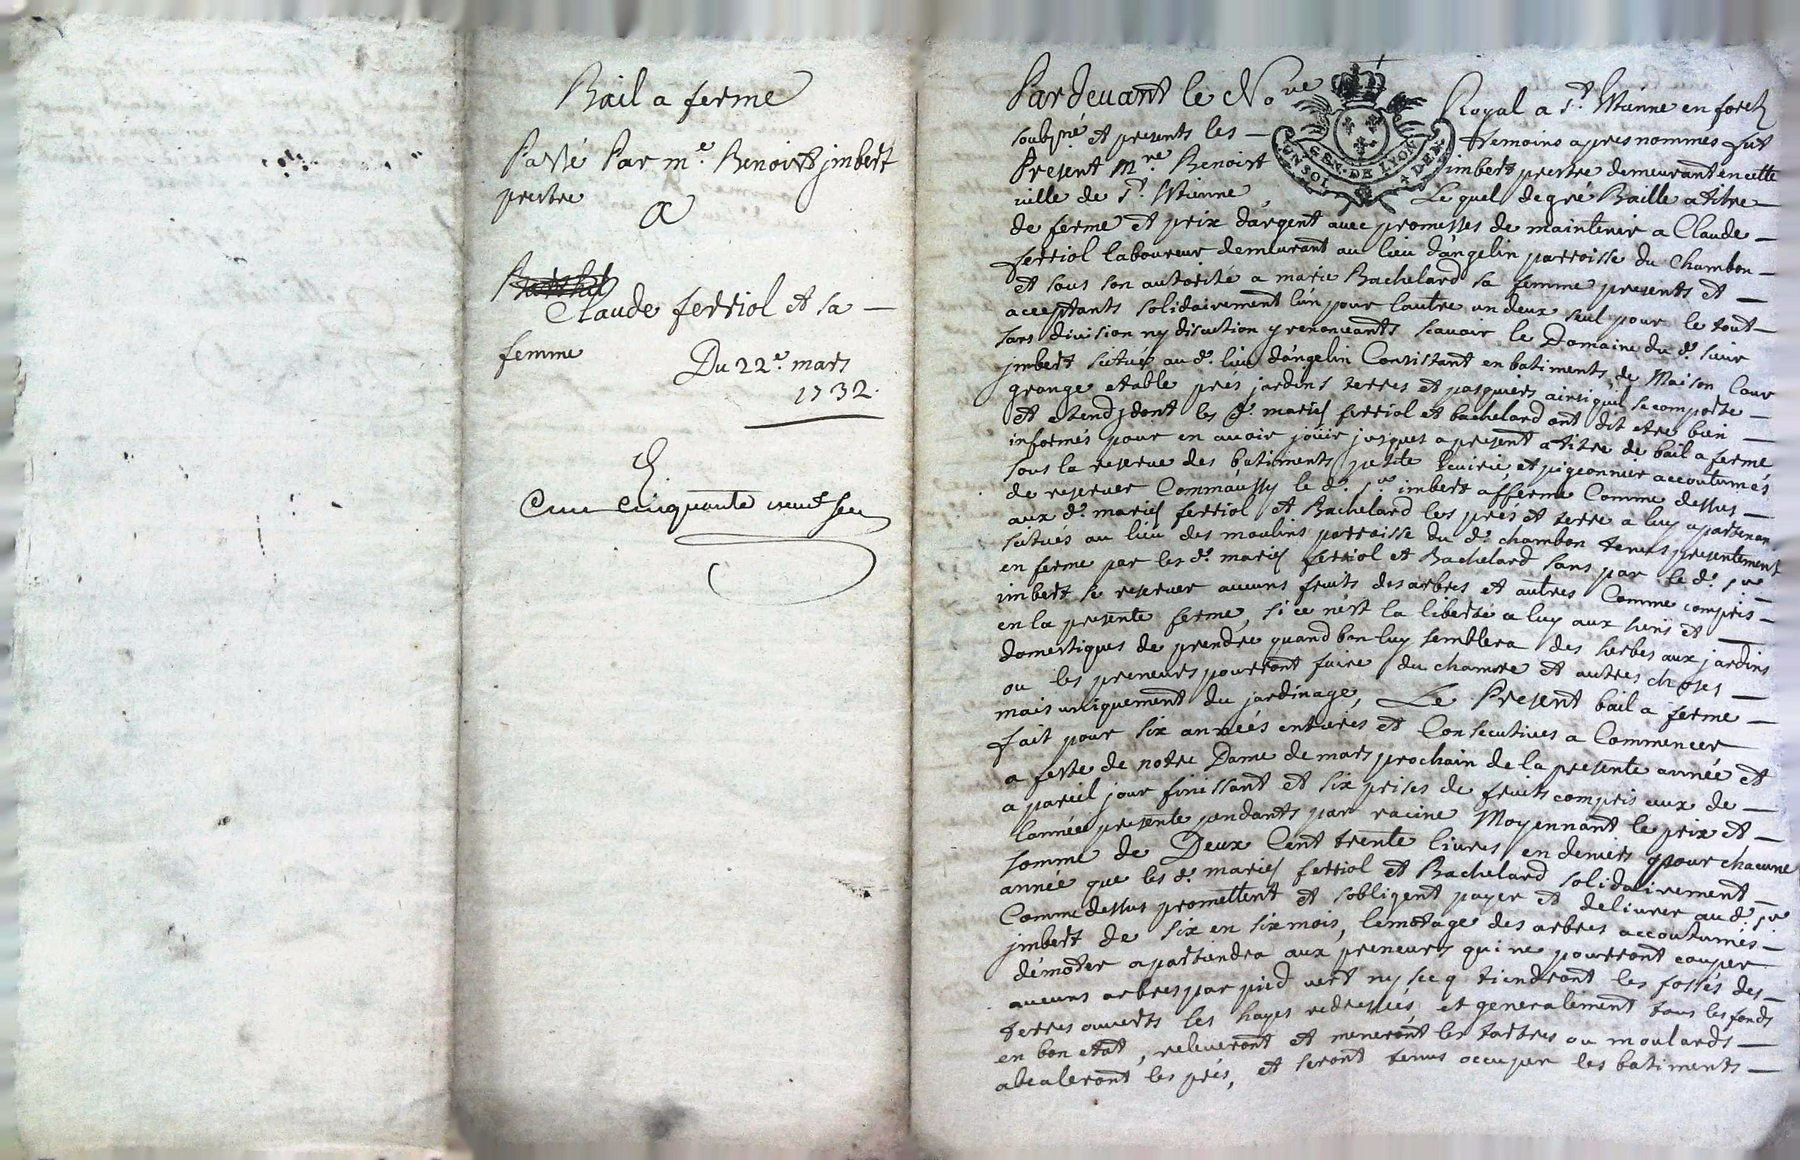 Bail a ferme
Passé Par me. Benoist jmbert
prestre
A
Claude ferriol et sa —
femme
Du 22e. mars
1732.
cinquante neuf
Par devant le Nore Royal a St. Etienne en forest
soubzné et presents les — temoins apres nommés fut
Present Mre Benoist imbert prestre demeurant en cette
ville de St. Etienne Lequel de gré Baille a titre —
de ferme et prix d'argent avec promesses de maintenir a Claude —
ferriol laboureur demeurant au lieu d'angelin parroisse du Chambon —
et sous son autorité a marie Bachelard sa femme presents et —
acceptants solidairement l'un pour l'autre un deux seul pour le tout —
sans division ny discution y renonceants scavoir le Domaine du d. sieur
jmbert scitués au d. lieu d'angelin Consistant en batiments de Maison Cour
grange etable prés jardins terres et pasquiers ainsi quil se comporte —
et etend dont les d. mariés ferriol et bachelard ont dit etre bien —
informés pour en avoir joüir jusques a present a titre de bail a ferme
sous la reserve des batiments petite Ecuirie et pigeonnier accoutumés
de reserver Commaussy le d. sr imbert afferme Comme dessus —
aux d. mariés ferriol et Bachelard les prés et terre a luy apartenan
scitués au lieu des moulins parroisse du d. chambon tenus presentement
en ferme par les d. mariés ferriol et Bachelard sans par le d. sr —
imbert se reserver aucuns fruits des arbres et autres Comme compris —
en la presente ferme, si ce n'est la liberté a luy aux siens et —
domestiques de prendre quand bon luy semblera des herbes aux jardins
ou les preneurs pourront faire du chamvre et autres choses —
mais uniquement du jardinage, Le Present bail a ferme —
fait pour six années entieres et Consecutives a Commencer
a feste de notre Dame de mars prochain de la presente année et
a pareil jour finissant et six prises de fruits compris ceux de —
l'année presente pendants par racine Moyennant le prix et —
somme de Deux Cent trente livres en deniers pour chacune
année que les d. mariés ferriol et Bachelard solidairement —
Comme dessus promettent et sobligent payer et delivrer au d. sr
jmbert de six en six mois, lemotage des arbres accoutumés —
démoter apartiendra aux preneurs qui ne pourront couper
aucuns arbres par pied vert ny secq tiendront les fossés des —
terres ouverts les hayes redressées, et generalement tous les fonds
en bon etat, releveront et meneront les tartres ou moulards —
les prés, et seront tenus occuper les batiments —
GEN. DE LYON